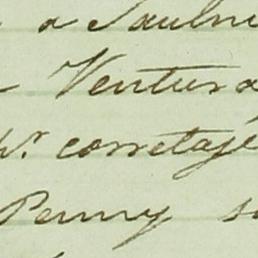 a Saulni
Ventura
pr. corretaje
Penny su